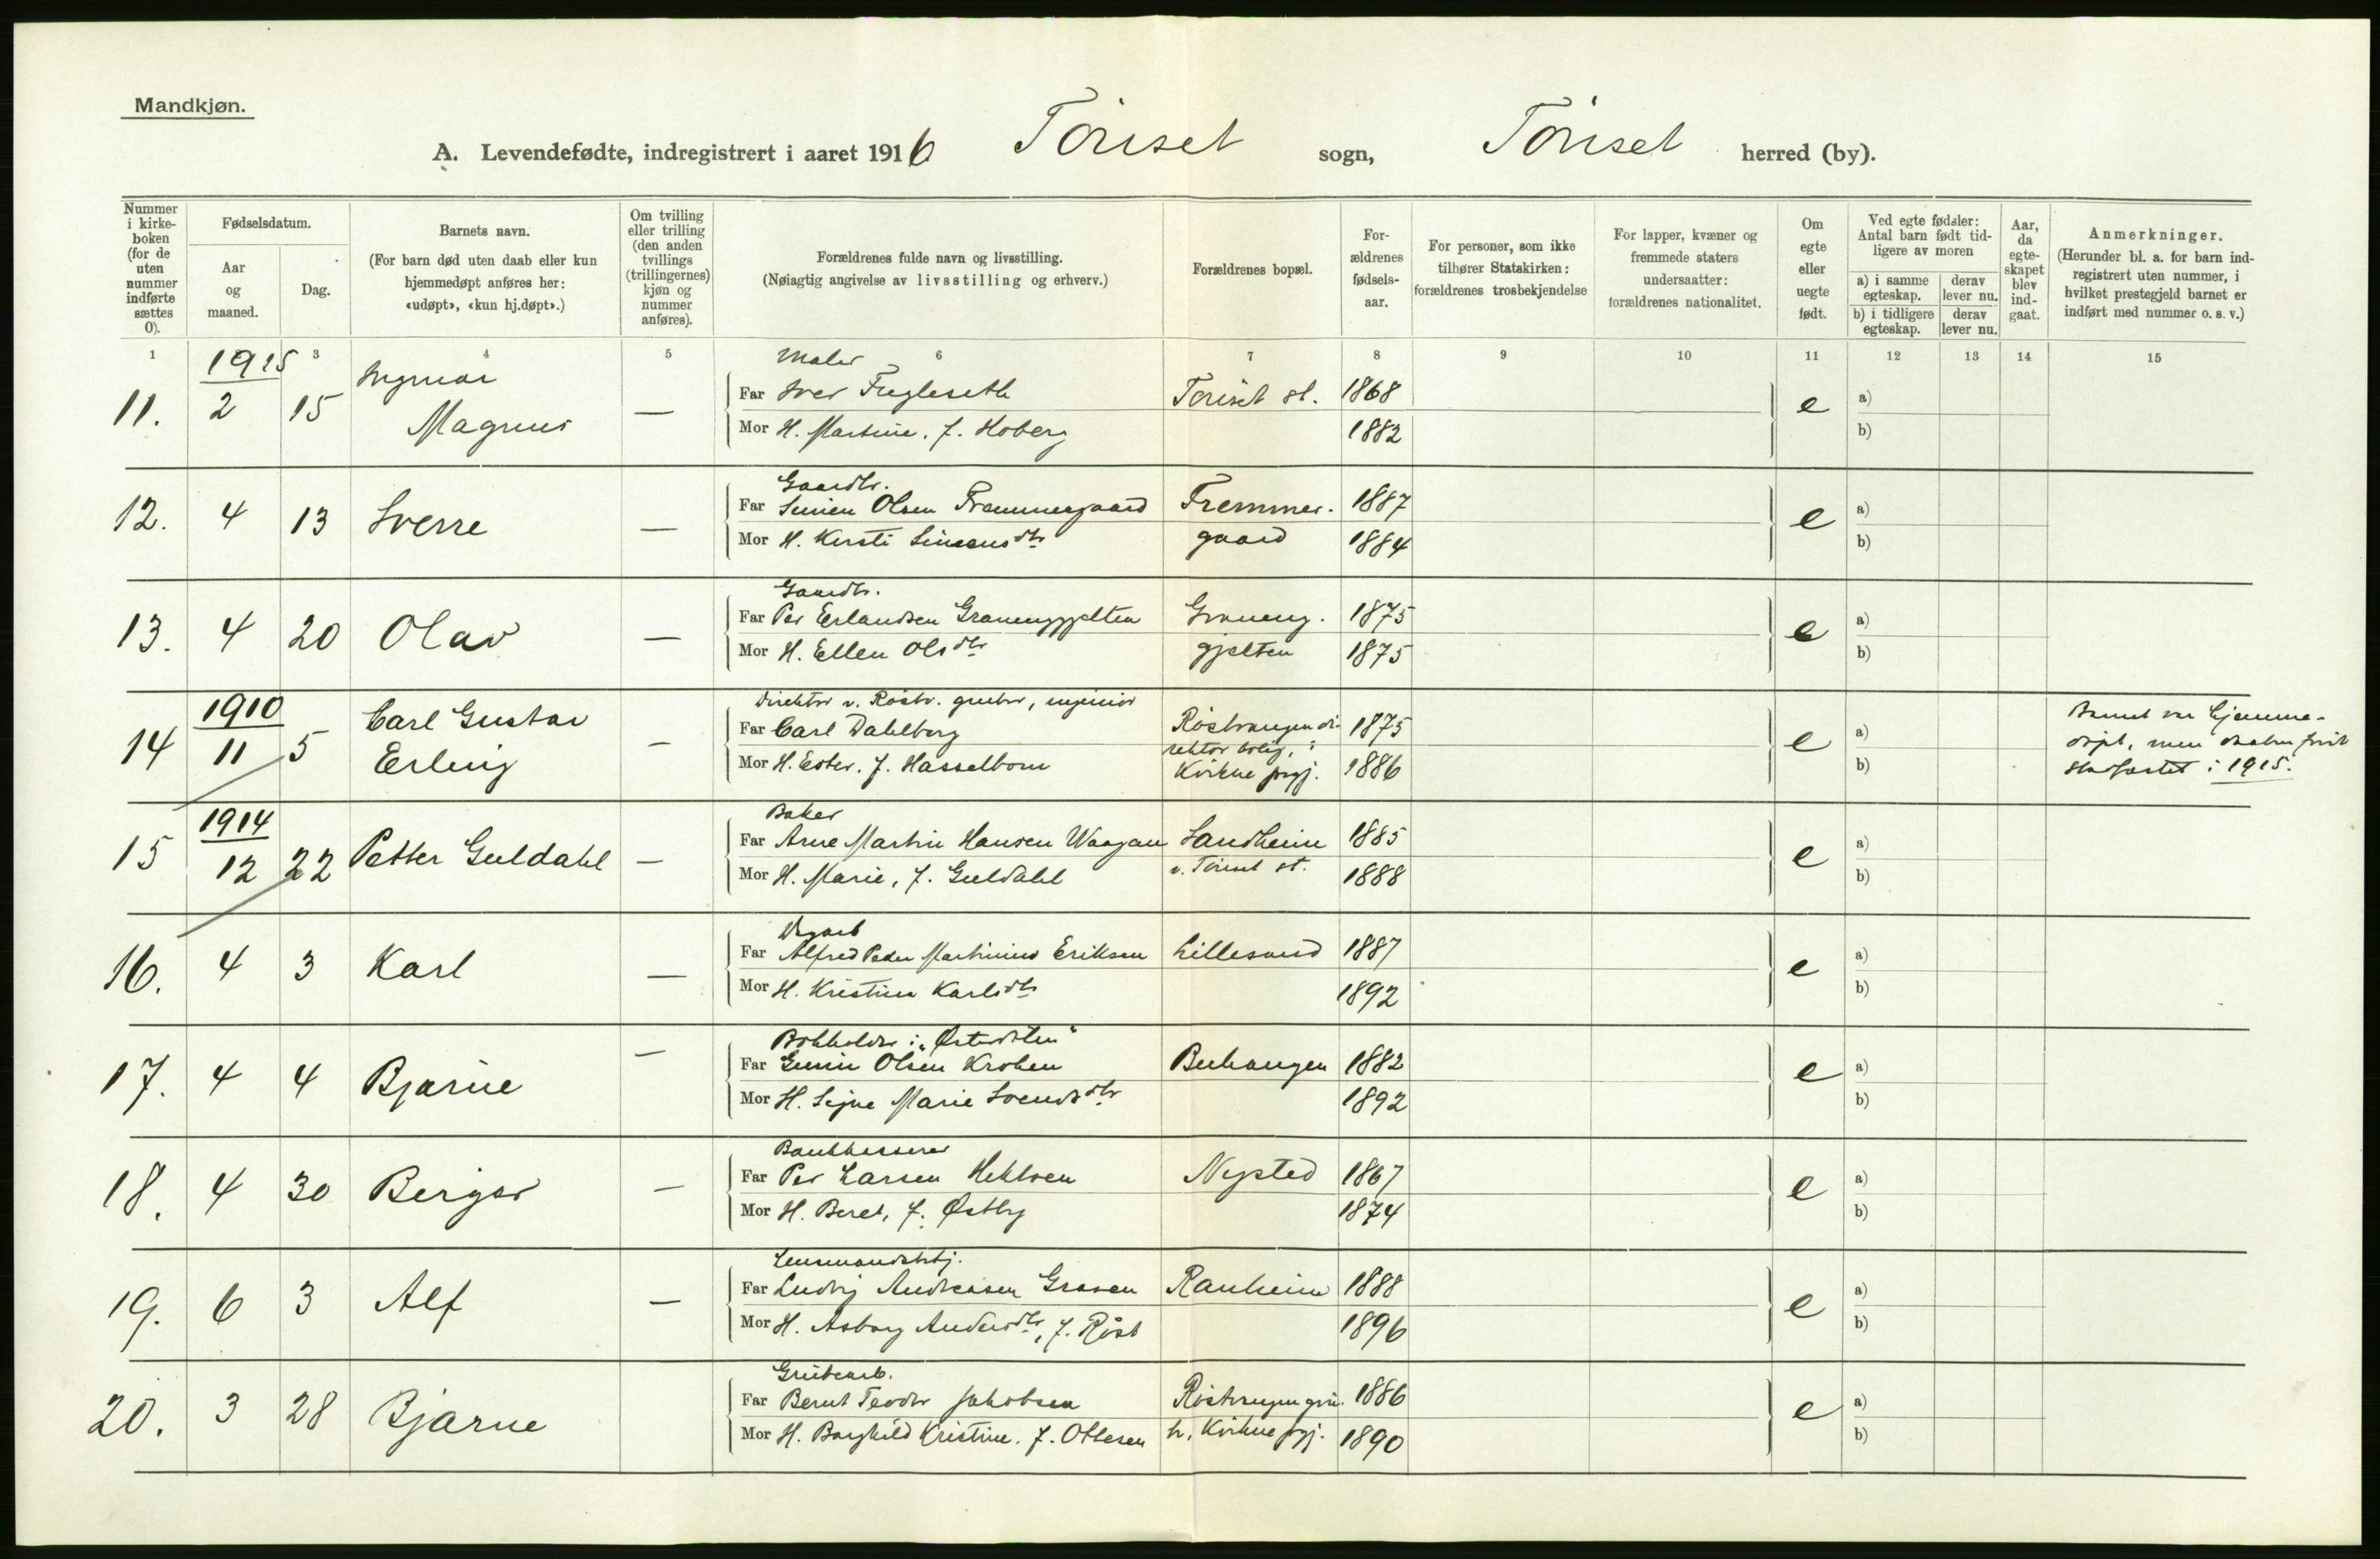 Mandkjøn.
A. Levendefødte, indregistrert i aaret 1916 Tönset sogn, Tönset herred (by).
Nummer i kirke-boken (for de uten nummer indførte sættes 0).
Fødselsdatum.
Aar og maaned.
Dag.
Barnets navn.
(For barn død uten daab eller kun hjemmedøpt anføres her: «udøpt», «kun hj.døpt».)
Om tvilling eller trilling (den anden tvillings (trillingernes) kjøn og nummer anføres).
Forældrenes fulde navn og livsstilling.
(Nøiagtig angivelse av livsstilling og erhverv.)
Forældrenes bopæl.
For-ældrenes fødsels-aar.
For personer, som ikke tilhører Statskirken: forældrenes trosbekjendelse
For lapper, kvæner og fremmede staters undersaatter: forældrenes nationalitet.
Om egte eller uegte født.
Ved egte fødsler: Antal barn født tid-ligere av moren
a) i samme egteskap. derav lever nu.
b) i tidligere egteskap. derav lever nu.
Aar, da egte-skapet blev ind-gaat.
Anmerkninger.
(Herunder bl. a. for barn ind-registrert uten nummer, i hvilket prestegjeld barnet er indført med nummer o. s. v.)
1 3 4 5 6 7 8 9 10 11 12 13 14 15
1915 Ingmar Maler
11. 2 15 Magnus — Far Iver Fugleseth Tönset st. 1868 e a)
Mor H. Martine, f. Hoberg 1882 b)
Gaardbr.
12. 4 13 Sverre — Far Simen Olsen Frammergaard Fremmer- 1887 e a)
Mor H. Kersti Simensdtr gaard 1884 b)
Gaardbr.
13. 4 20 Olav — Far Per Erlandsen Granenggjelten Graneng- 1875 e a)
Mor H. Ellen Olsdtr gjelten 1875 b)
1910 Direktör v. Röstv. gruber, ingeniör
14 11 5 Carl Gustav Erling — Far Carl Dahlberg Röstvangen di- 1875 e a)
Mor H. Ester, f. Hasselbom rektör bolig, i Kvikne prgj. 1886 b)
Barnet var hjemme-
döpt, men daaben först
stadfæstet i 1915.
1914 Baker
15 12 22 Petter Guldahl — Far Arne Martin Hansen Waagan Sandheim 1885 e a)
Mor H. Marie, f. Guldahl v. Tönset st. 1888 b)
16. 4 3 Karl — Far Alfred Peder Martinius Eriksen Lillesund 1887 e a)
Mor H. Kristine Karlsdtr 1892 b)
Bokholder i "Østerdölen"
17. 4 4 Bjarne — Far Gunnar Olsen Kroken 1882 e a)
Mor H. Signe Marie Svendsdtr 1892 b)
Bankkasserer
18. 4 30 Berger — Far Per Larsen Nysted 1867 e a)
Mor H. Beret, f. Østby 1874 b)
Lensmandsbtj.
19. 6 3 Alf — Far Ludvig Andreasen Graven Ranheim 1888 e a)
Mor H. Asborg Andersdtr, f. Röst 1896 b)
Grubearb.
20. 3 28 Bjarne Far Bernt Teodor Jakobsen Röstvangen gru- 1886 e a)
Mor H. Borghild Kristine, f. Ottesen br, Kvikne prgj. 1890 b)